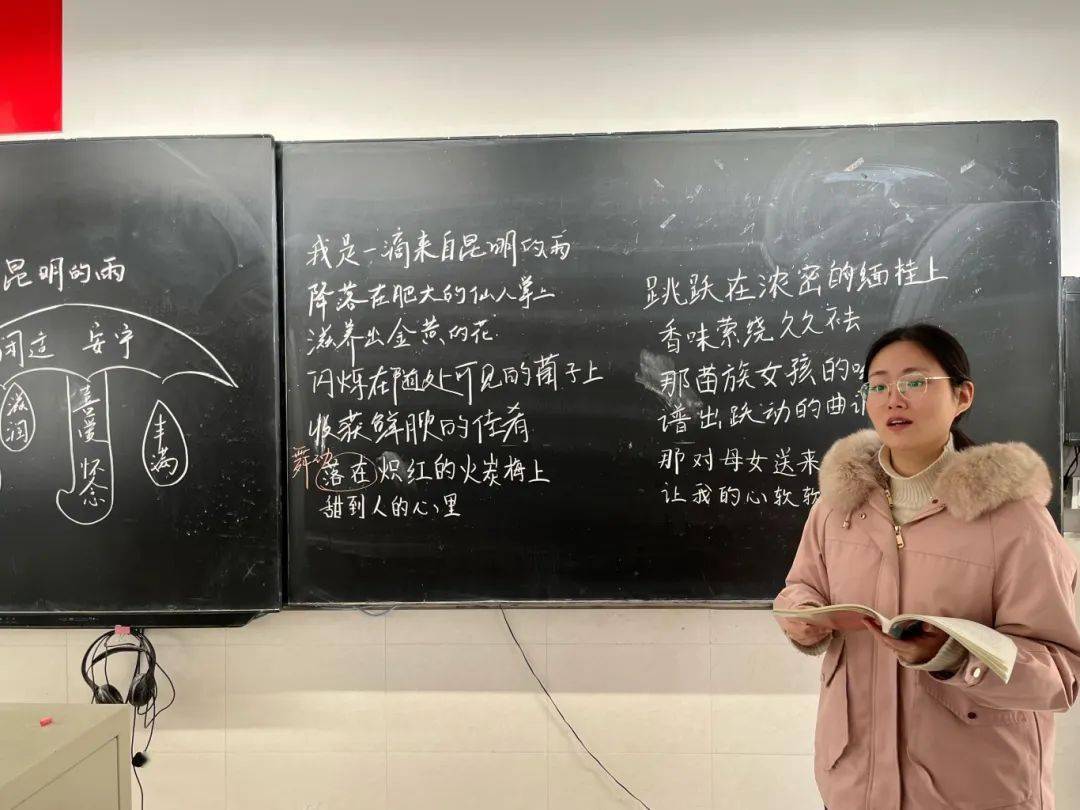 昆明的雨
闲适 安宁
滋润
喜爱 怀念
丰满
我是一滴来自昆明的雨
降落在肥大的仙人掌上
滋养出金黄的花
闪烁在随处可见的菌子上
收获鲜腴的佳肴
舞动
落在炽红的火炭梅上
甜到人的心里
跳跃在浓密的缅桂上
香味萦绕久久不去
那苗族女孩的
谱出跃动的曲
那对母女送来
让我的心软软